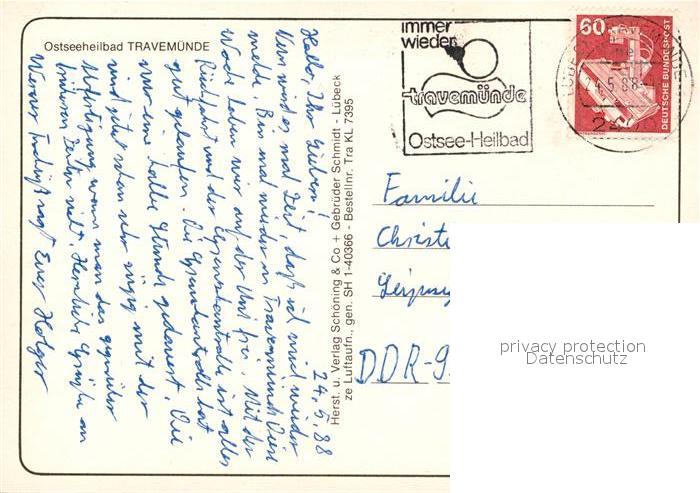 Ostseeheilbad TRAVEMÜNDE
24.5.88
Hallo, Ihr Lieben!
Nun wird es mal Zeit daß ich mich wieder
melde. Bin mal wieder in Travemünde. Diese
Woche haben wir auf der Uni frei. Mit der
Rückfahrt und der Grenzkontrolle ist alles
gut gelaufen. Die Grenzkontrolle hat
nur eine halbe Stunde gedauert. Die
sind jetzt schon sehr zügig mit der
Abfertigung wenn man das gegenüber
früheren Zeiten sieht. Herzliche Grüße an
Werner Euer Holger
Herst. u. Verlag Schöning & Co + Gebrüder Schmidt - Lübeck
ze Luftaufn., gen. SH 1-40366 - Bestellnr. Tra KL 7395
immer
wieder
travemünde
Ostsee-Heilbad
60
DEUTSCHE BUNDESPOST
24.5.88
Familie
Christ
DDR-9
privacy protection
Datenschutz